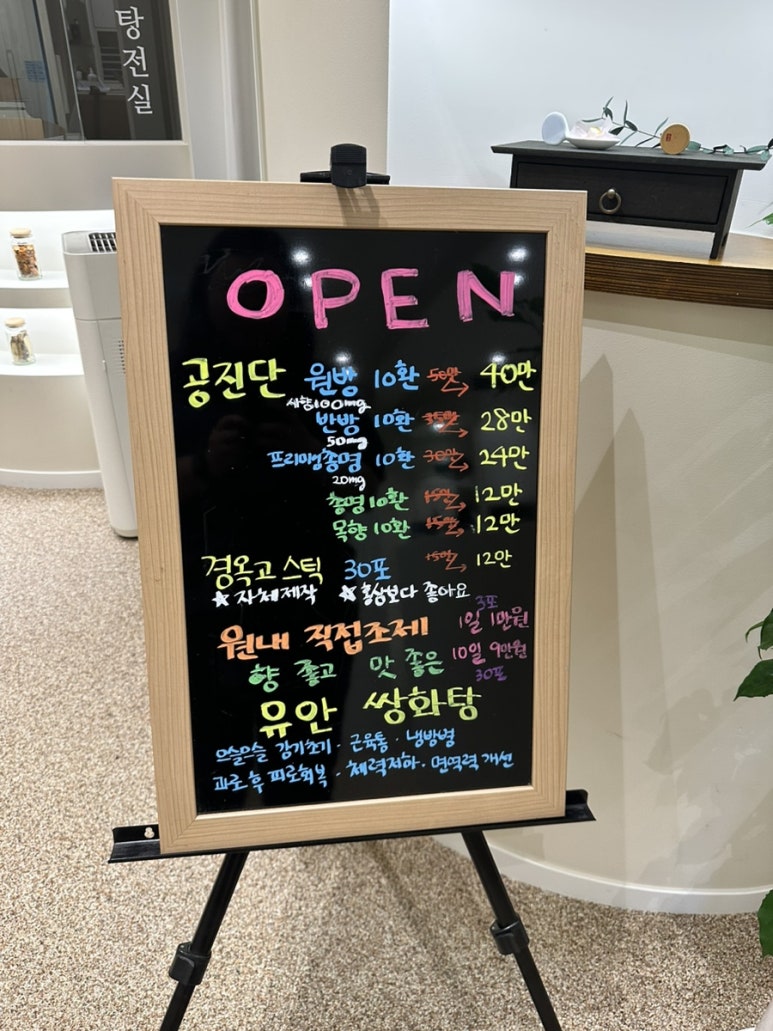 탕전실
OPEN
공진단 원방 10환 50만 → 40만
사향100mg
반방 10환 35만 → 28만
50mg
프리미엄총명 10환 30만 → 24만
20mg
총명 10환 15만 → 12만
목향 10환 15만 → 12만
경옥고 스틱 30포 15만 → 12만
☆ 자체제작 ☆ 홍삼보다 좋아요
원내 직접조제!
3포
1일 1만원
향 좋고 맛 좋은
10일 9만원
30포
유안 쌍화탕
으슬으슬 감기초기 · 근육통 · 냉방병
과로 후 피로회복 · 체력저하 · 면역력 개선